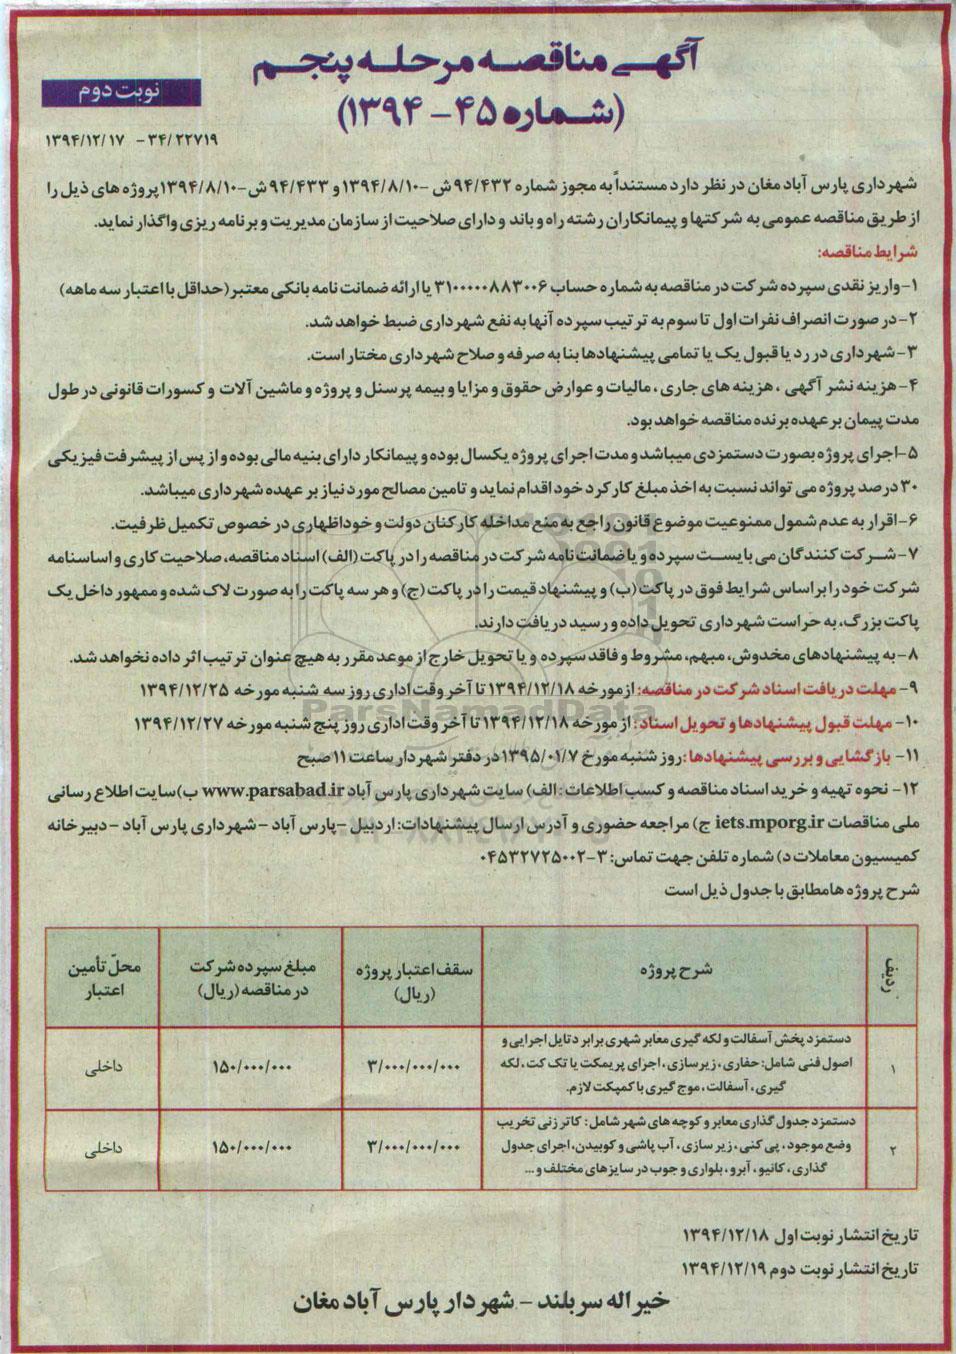 آگهی مناقصه مرحله پنجم
(شماره ۴۵ - ۱۳۹۴)
نوبت دوم
۳۴/۲۲۷۱۹ - ۱۳۹۴/۱۲/۱۷
شهرداری پارس آباد مغان در نظر دارد مستنداً به مجوز شماره ۹۴/۴۳۲ش -۱۳۹۴/۸/۱۰ و ۹۴/۴۳۳ش -۱۳۹۴/۸/۱۰ پروژه های ذیل را
از طریق مناقصه عمومی به شرکتها و پیمانکاران رشته راه و باند و دارای صلاحیت از سازمان مدیریت و برنامه ریزی واگذار نماید.
شرایط مناقصه:
۱-واریز نقدی سپرده شرکت در مناقصه به شماره حساب ۳۱۰۰۰۰۰۸۸۳۰۰۶ یا ارائه ضمانت نامه بانکی معتبر(حداقل با اعتبار سه ماهه)
۲-در صورت انصراف نفرات اول تا سوم به ترتیب سپرده آنها به نفع شهرداری ضبط خواهد شد.
۳-شهرداری در رد یا قبول یک یا تمامی پیشنهادها بنا به صرفه و صلاح شهرداری مختار است.
۴-هزینه نشر آگهی ، هزینه های جاری ، مالیات و عوارض حقوق و مزایا و بیمه پرسنل و پروژه و ماشین آلات و کسورات قانونی در طول
مدت پیمان بر عهده برنده مناقصه خواهد بود.
۵-اجرای پروژه بصورت دستمزدی میباشد و مدت اجرای پروژه یکسال بوده و پیمانکار دارای بنیه مالی بوده و از پس از پیشرفت فیزیکی
۳۰ درصد پروژه می تواند نسبت به اخذ مبلغ کارکرد خود اقدام نماید و تامین مصالح مورد نیاز بر عهده شهرداری میباشد.
۶-اقرار به عدم شمول ممنوعیت موضوع قانون راجع به منع مداخله کارکنان دولت و خوداظهاری در خصوص تکمیل ظرفیت.
۷-شرکت کنندگان می بایست سپرده و یا ضمانت نامه شرکت در مناقصه را در پاکت (الف) اسناد مناقصه، صلاحیت کاری و اساسنامه
شرکت خود را براساس شرایط فوق در پاکت (ب) و پیشنهاد قیمت را در پاکت (ج) و هر سه پاکت را به صورت لاک شده و ممهور داخل یک
پاکت بزرگ، به حراست شهرداری تحویل داده و رسید دریافت دارند.
۸-به پیشنهادهای مخدوش، مبهم، مشروط و فاقد سپرده و یا تحویل خارج از موعد مقرر به هیچ عنوان ترتیب اثر داده نخواهد شد.
۹- مهلت دریافت اسناد شرکت در مناقصه: از مورخه ۱۳۹۴/۱۲/۱۸ تا آخر وقت اداری روز سه شنبه مورخه ۱۳۹۴/۱۲/۲۵
۱۰- مهلت قبول پیشنهادها و تحویل اسناد: از مورخه ۱۳۹۴/۱۲/۱۸ تا آخر وقت اداری روز پنج شنبه مورخه ۱۳۹۴/۱۲/۲۷
۱۱- بازگشایی و بررسی پیشنهادها: روز شنبه مورخ ۱۳۹۵/۰۱/۷ در دفتر شهردار ساعت ۱۱ صبح
۱۲- نحوه تهیه و خرید اسناد مناقصه و کسب اطلاعات : الف) سایت شهرداری پارس آباد www.parsabad.ir ب)سایت اطلاع رسانی
ملی مناقصات iets.mporg.ir ج) مراجعه حضوری و آدرس ارسال پیشنهادات: اردبیل - پارس آباد - شهرداری پارس آباد - دبیرخانه
کمیسیون معاملات د) شماره تلفن جهت تماس: ۳-۰۴۵۳۲۷۲۵۰۰۲
شرح پروژه ها مطابق با جدول ذیل است
ردیف
شرح پروژه
سقف اعتبار پروژه
(ریال)
مبلغ سپرده شرکت
در مناقصه (ریال)
محلّ تأمین
اعتبار
۱
دستمزد پخش آسفالت و لکه گیری معابر شهری برابر دتایل اجرایی و
اصول فنی شامل: حفاری، زیرسازی، اجزای پریمکت یا تک کت، لکه
گیری، آسفالت، موج گیری با کمپکت لازم.
۳/۰۰۰/۰۰۰/۰۰۰
۱۵۰/۰۰۰/۰۰۰
داخلی
۲
دستمزد جدول گذاری معابر و کوچه های شهر شامل: کاتر زنی تخریب
وضع موجود، پی کنی، زیر سازی، آب پاشی و کوبیدن، اجرای جدول
گذاری، کانیو، آبرو، بلواری و جوب در سایزهای مختلف و...
۳/۰۰۰/۰۰۰/۰۰۰
۱۵۰/۰۰۰/۰۰۰
داخلی
تاریخ انتشار نوبت اول ۱۳۹۴/۱۲/۱۸
تاریخ انتشار نوبت دوم ۱۳۹۴/۱۲/۱۹
خیر اله سربلند - شهردار پارس آباد مغان
ParsNamadData